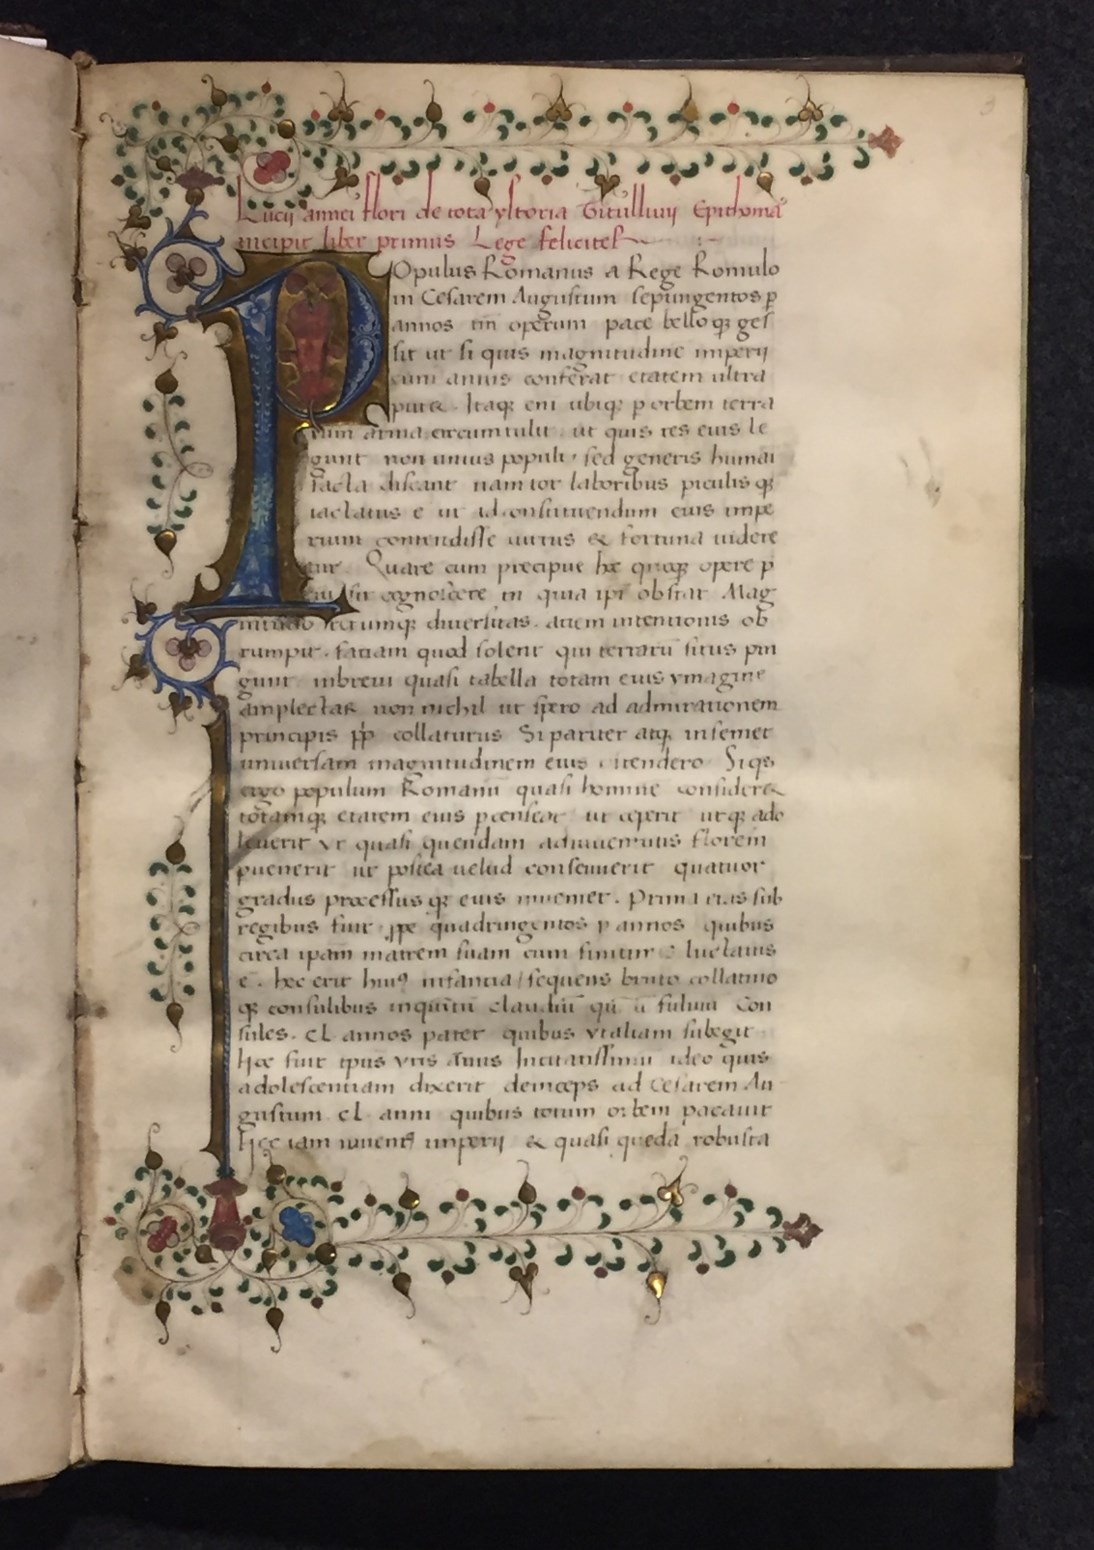 Lucij annei flori de tota ystoria Titullivij Epithoma
incipit liber primus Lege feliciter
POpulus Romanus a Rege Romulo
in Cesarem Augustum septingentos p
annos tm̄ operum pace bello q; ges
sit ut si quis magnitudine imperij
cum annis conferat etatem ultra
putet. Itaq; eni ubiq; p orbem terra
rum arma circumtulit. ut quis res eius le
gunt non unius populi. sed generis humāi
facta discant nam tot laboribus piculis q;
iactatus ē ut ad constituendum eius impe
rium contendisse uirtus & fortuna uidere
tur. Quare cum precipue hec quoq; opere p
sit cognoscere in quia ipī obstat Mag
nitudo rerumq; diuersitas. aciem intentionis ob
rumpit. faciam quod solent qui terrarū situs pin
gunt inbreui quasi tabella totam eius ymagine
amplectar non nichil ut spero ad admirationem
principis pp̄ collaturus Si pariter atq; insemet
uniuersam magnitudinem eius ostendero Si qs
ergo populum Romanū quasi homine consideret
totamq; etatem eius pcenseat ut ceperit utq; ado
leuerit ut quasi quendam ad iuuentutis florem
puenerit ut postea uelud consenuerit quatuor
gradus processus q; eius inueniet. Prima etas sub
regibus fuit quadringentos p annos quibus
circa ipam matrem suam cum finitimis luctatus
ē. hec erit hui9 infantia sequens bruto collatino
q; consulibus in quintū claudiū fuluiū Con
sules. cl annos patet quibus ytaliam subegit
Hoc fuit tpus uiris armis Incitatissimū ideo quis
adolescentiam dixerit deinceps ad Cesarem Au
gustum. cl. anni quibus totum orbem pacauit
Hec iam iuuent9 imperij & quasi quedā robusta